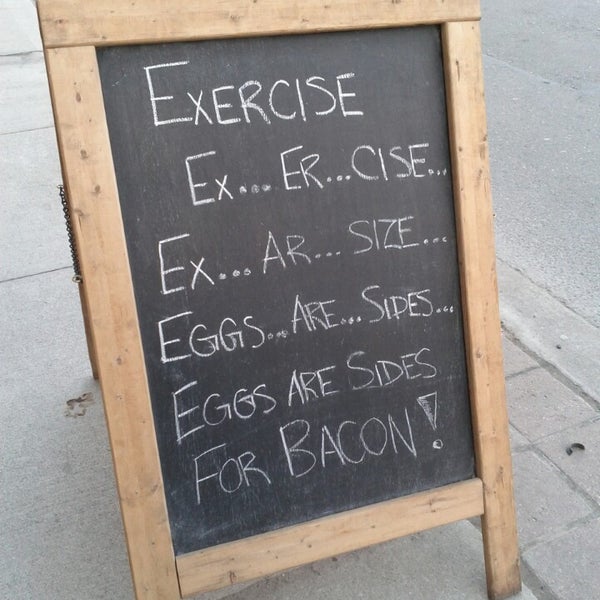 EXERCISE
EX... ER... CISE...
EX... AR... SIZE...
EGGS... ARE... SIDES...
EGGS ARE SIDES
FOR BACON!